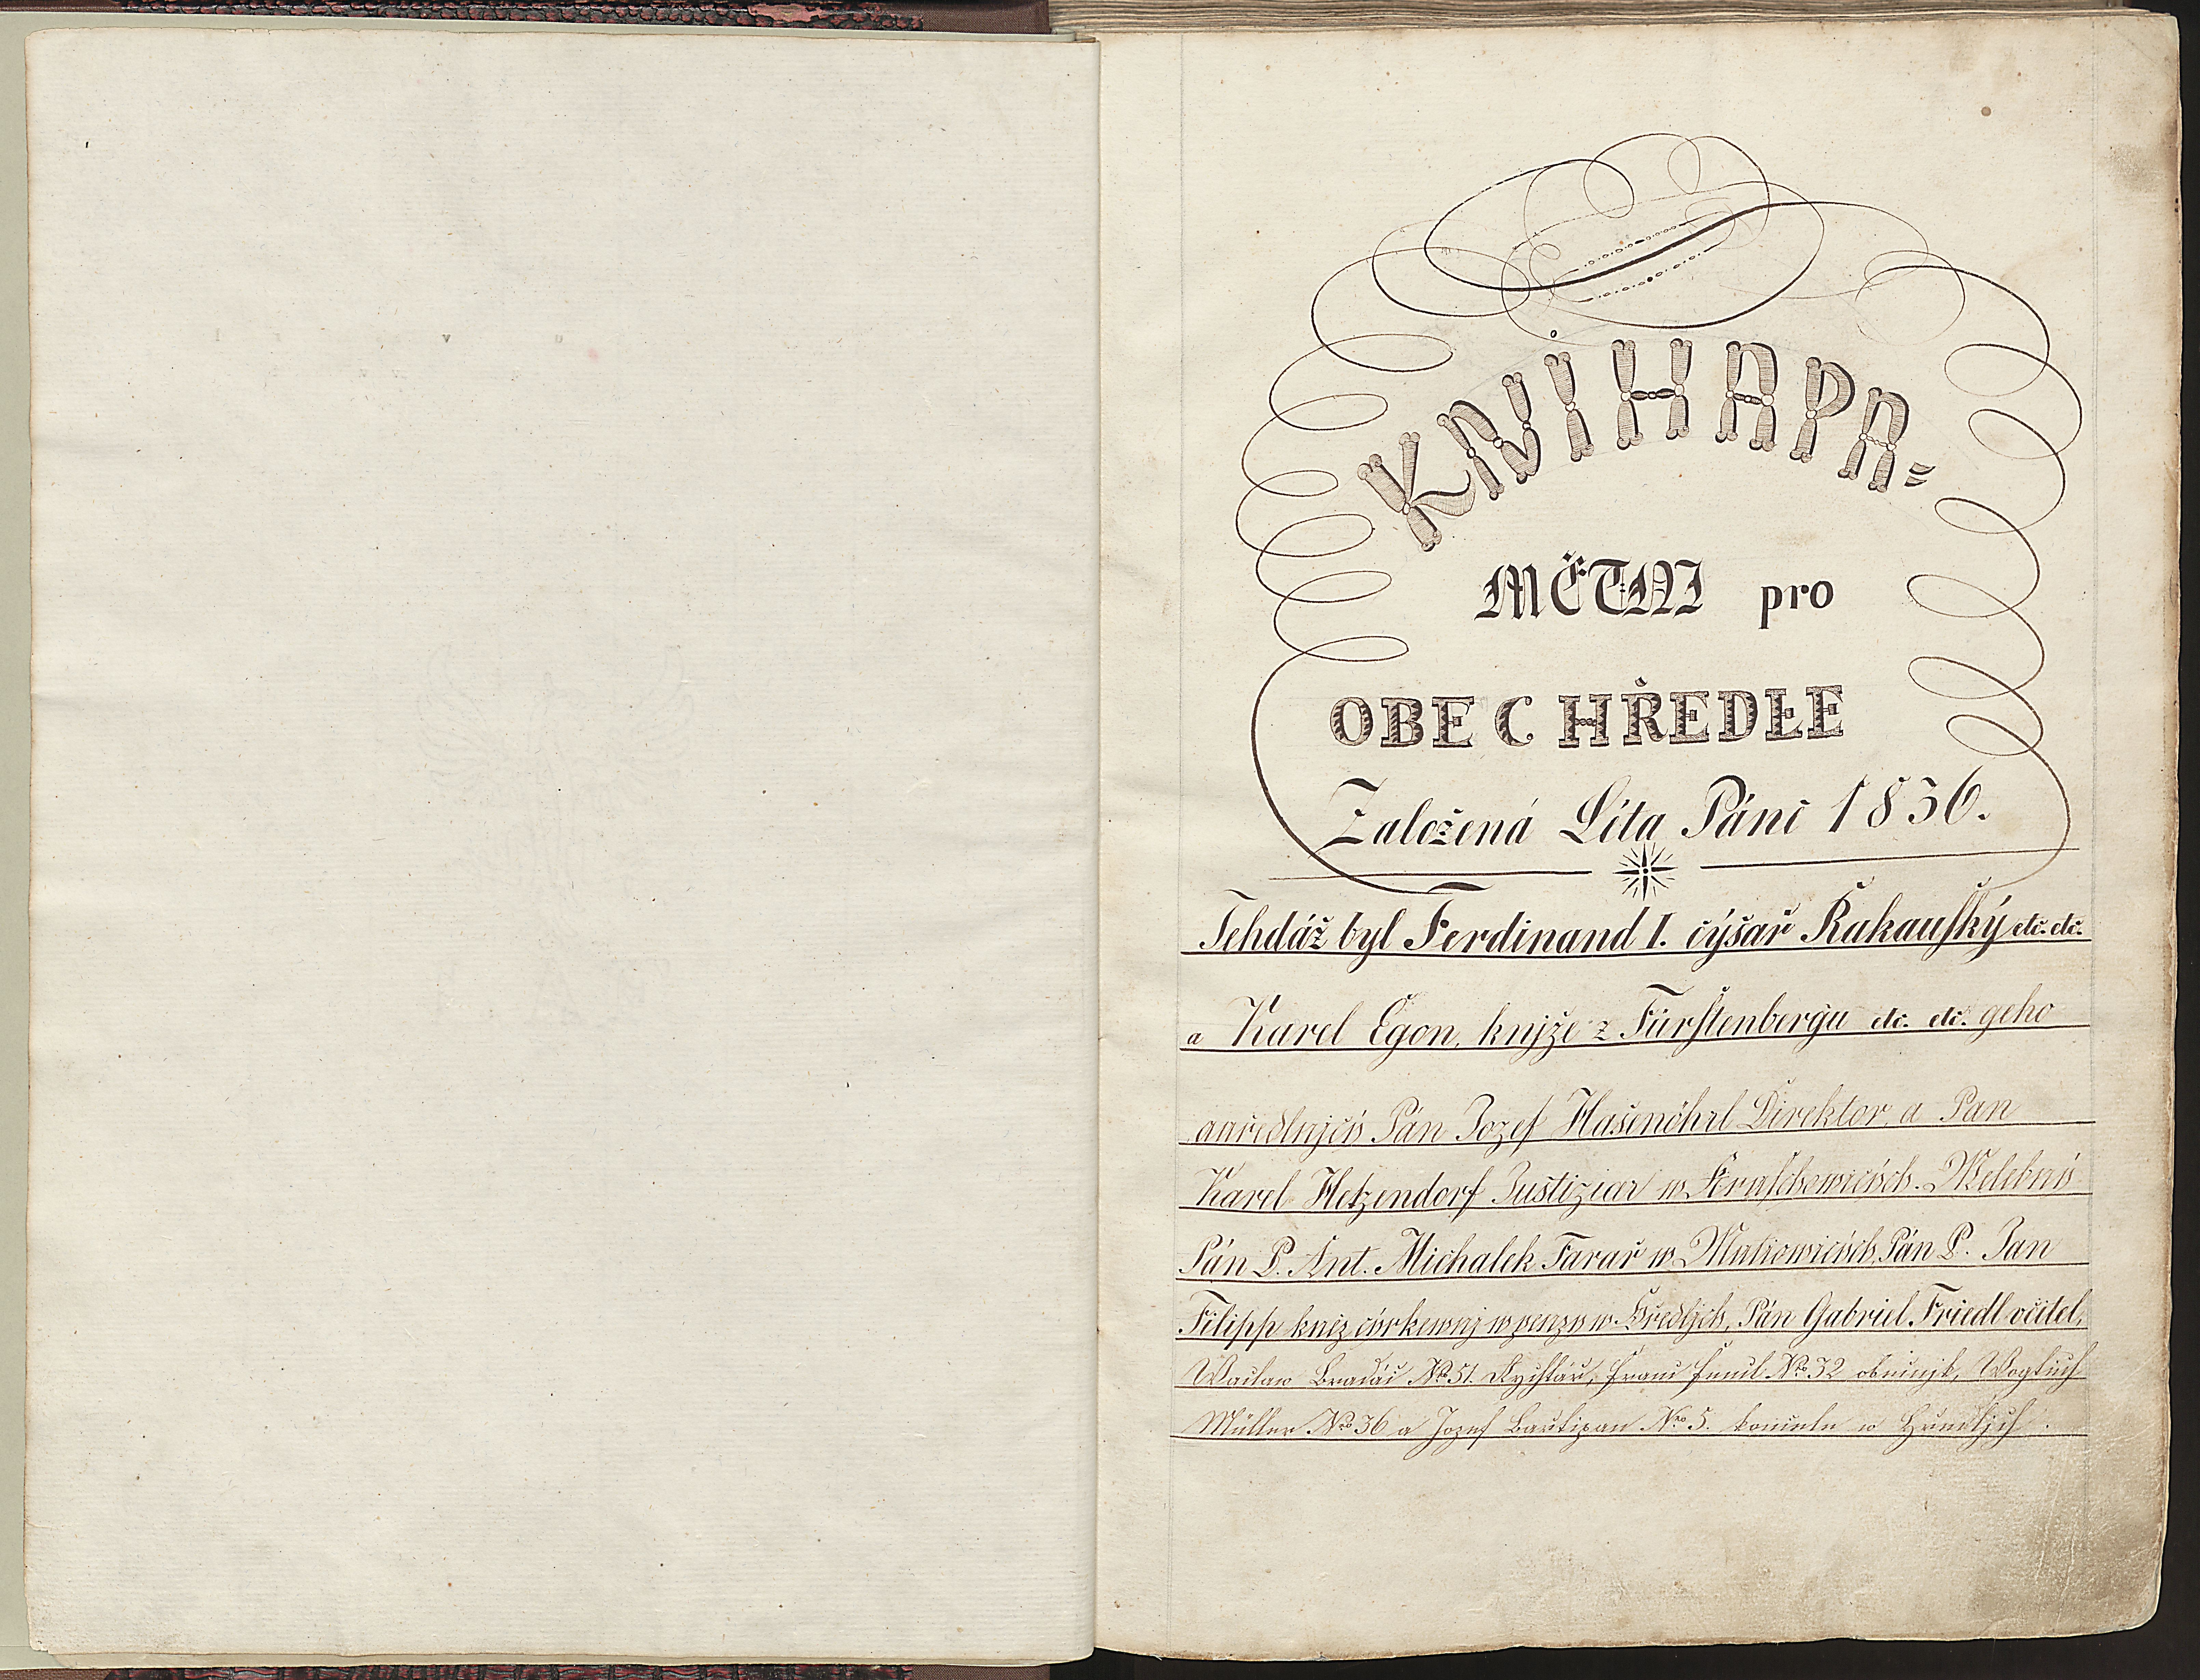 KNIHA PA=
MĚTNI pro
OBEC HŘEDLE
Založená Léta Páně 1836.
Tehdáž byl Ferdinand I. cýsař Rakauský etc. etc.
a Karel Egon, knjže z Fürstenbergu etc. etc. geho
auředlnjcy Pán Jozef Hasenöhrl Direktor, a Pan
Karel Hetzendorf Justiziar w Kruschowicých. Welebný
Pán P. Ant. Michalek Farař w Mutiowicých, Pán P. Jan
Filipp kněz cýrkewnj w penzy w Hředljch, Pán Gabriel Friedl včitel,
Waclaw Bradáč No 51. Rychtář, Franc No 32 obecnjk, Wogtěch
Müller No 36 a Jozef No 5. konšele w Hředljch.